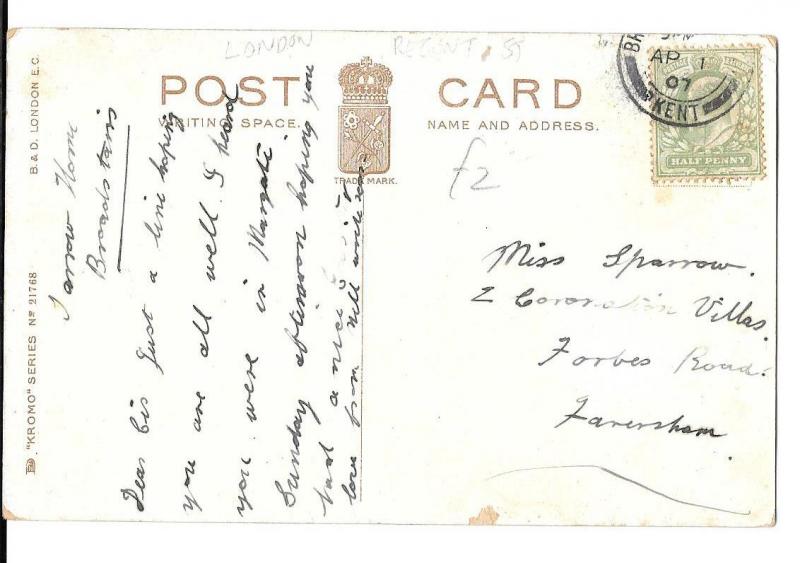 LONDON
REGENT ST
POST CARD
WRITING SPACE.
NAME AND ADDRESS.
TRADE MARK.
B & D. LONDON E.C.
"KROMO" SERIES Nº 21768
£2
AP 1
07
KENT
HALF PENNY
Miss Sparrow.
2 Coronation Villas.
Forbes Road.
Faversham.
Home
Broadstairs
Dear Cis just a line hoping
you are all well. I heard
you were in Margate
Sunday afternoon hoping you
had a nice
love from Nell write soon